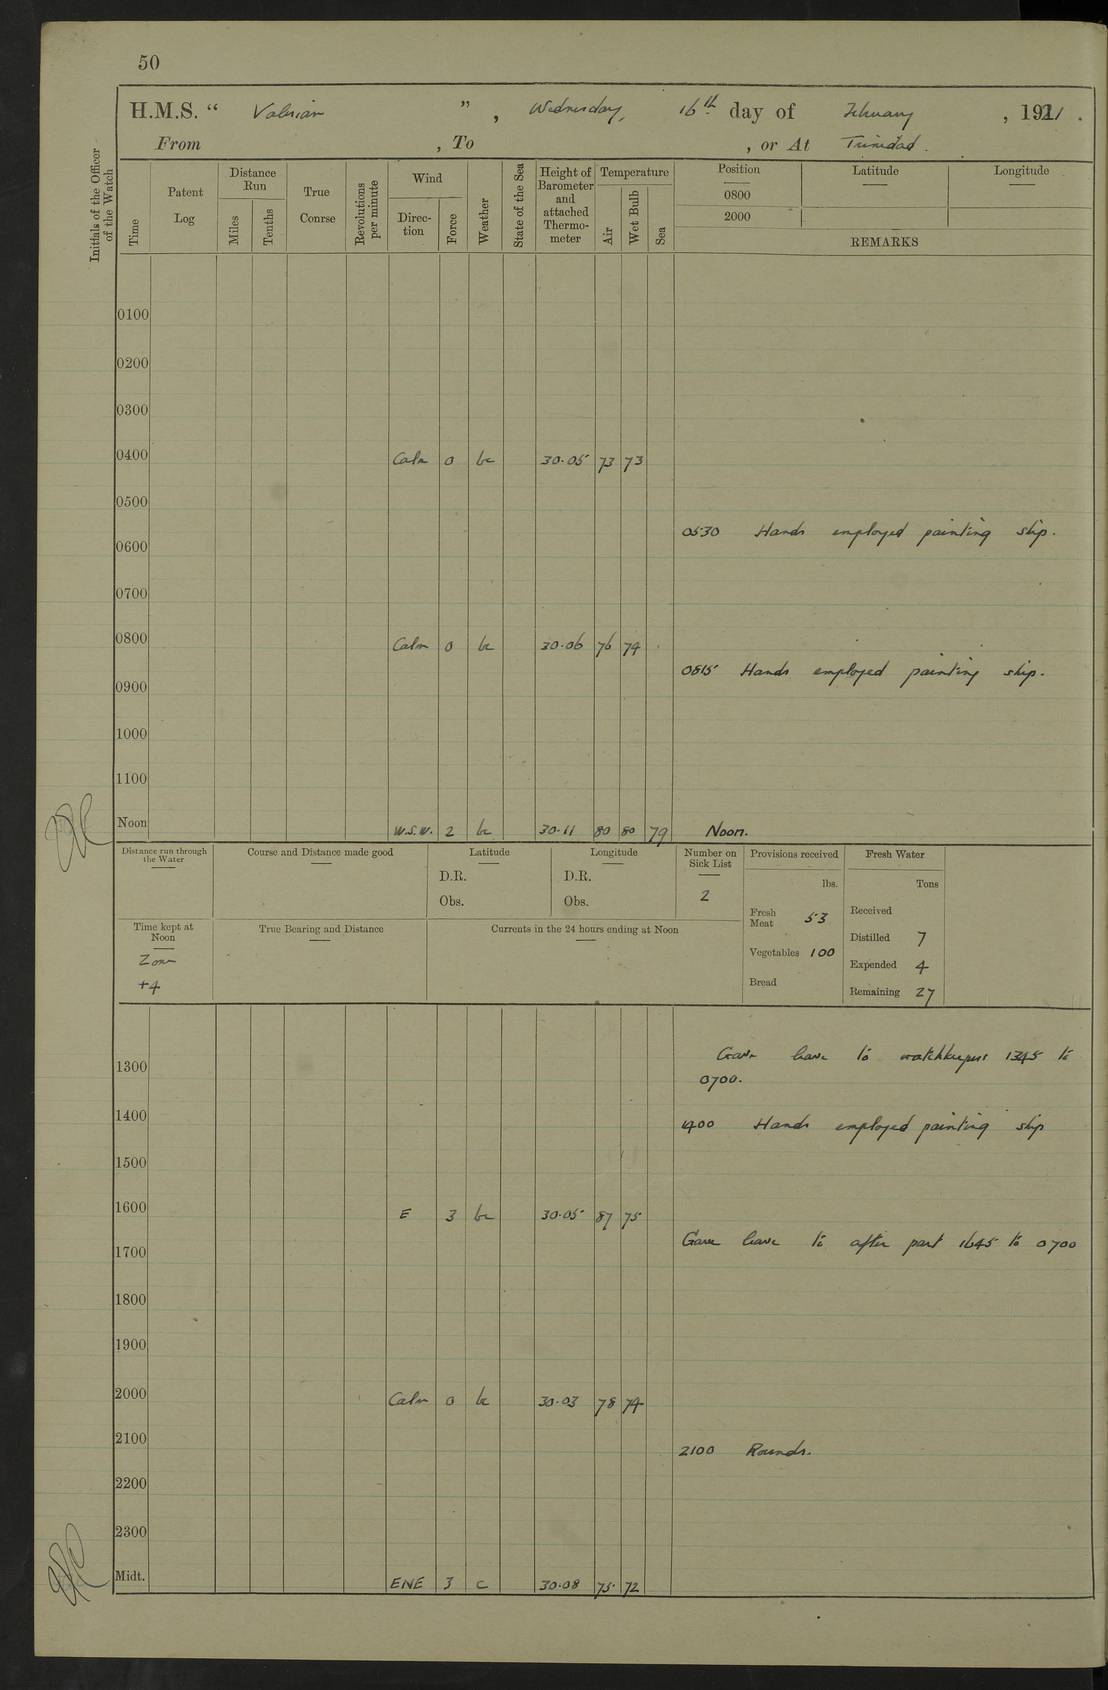 50
H.M.S. “ Valerian ” , Wednesday, 16th day of February , 1921 .
From , To , or At Trinidad .
Initials of the Officer of the Watch
Time
Patent Log
Distance Run
Miles
Tenths
True Course
Revolutions per minute
Wind
Direction
Force
Weather
State of the Sea
Height of Barometer and attached Thermometer
Temperature
Air
Wet Bulb
Sea
Position Latitude Longitude
0800
2000
REMARKS
0100
0200
0300
0400 Calm 0 bc 30.05 73 73
0500
0530 Hands employed painting ship.
0600
0700
0800 Calm 0 bc 30.06 76 74
0815 Hands employed painting ship.
0900
1000
1100
Noon W.S.W. 2 bc 30.11 80 80 79 Noon.
Distance run through the Water
Course and Distance made good
Latitude
D.R.
Obs.
Longitude
D.R.
Obs.
Number on Sick List
2
Provisions received
lbs.
Fresh Meat 53
Vegetables 100
Bread
Fresh Water
Tons
Received
Distilled 7
Expended 4
Remaining 27
Time kept at Noon
Zone
+4
True Bearing and Distance
Currents in the 24 hours ending at Noon
Gave leave to watchkeepers 1345 to
0700.
1300
1400
1400 Hands employed painting ship
1500
1600 E 3 bc 30.05 87 75
Gave leave to after part 1645 to 0700
1700
1800
1900
2000 Calm 0 bc 30.03 78 74
2100
2100 Rounds.
2200
2300
Midt. ENE 3 c 30.08 75 72